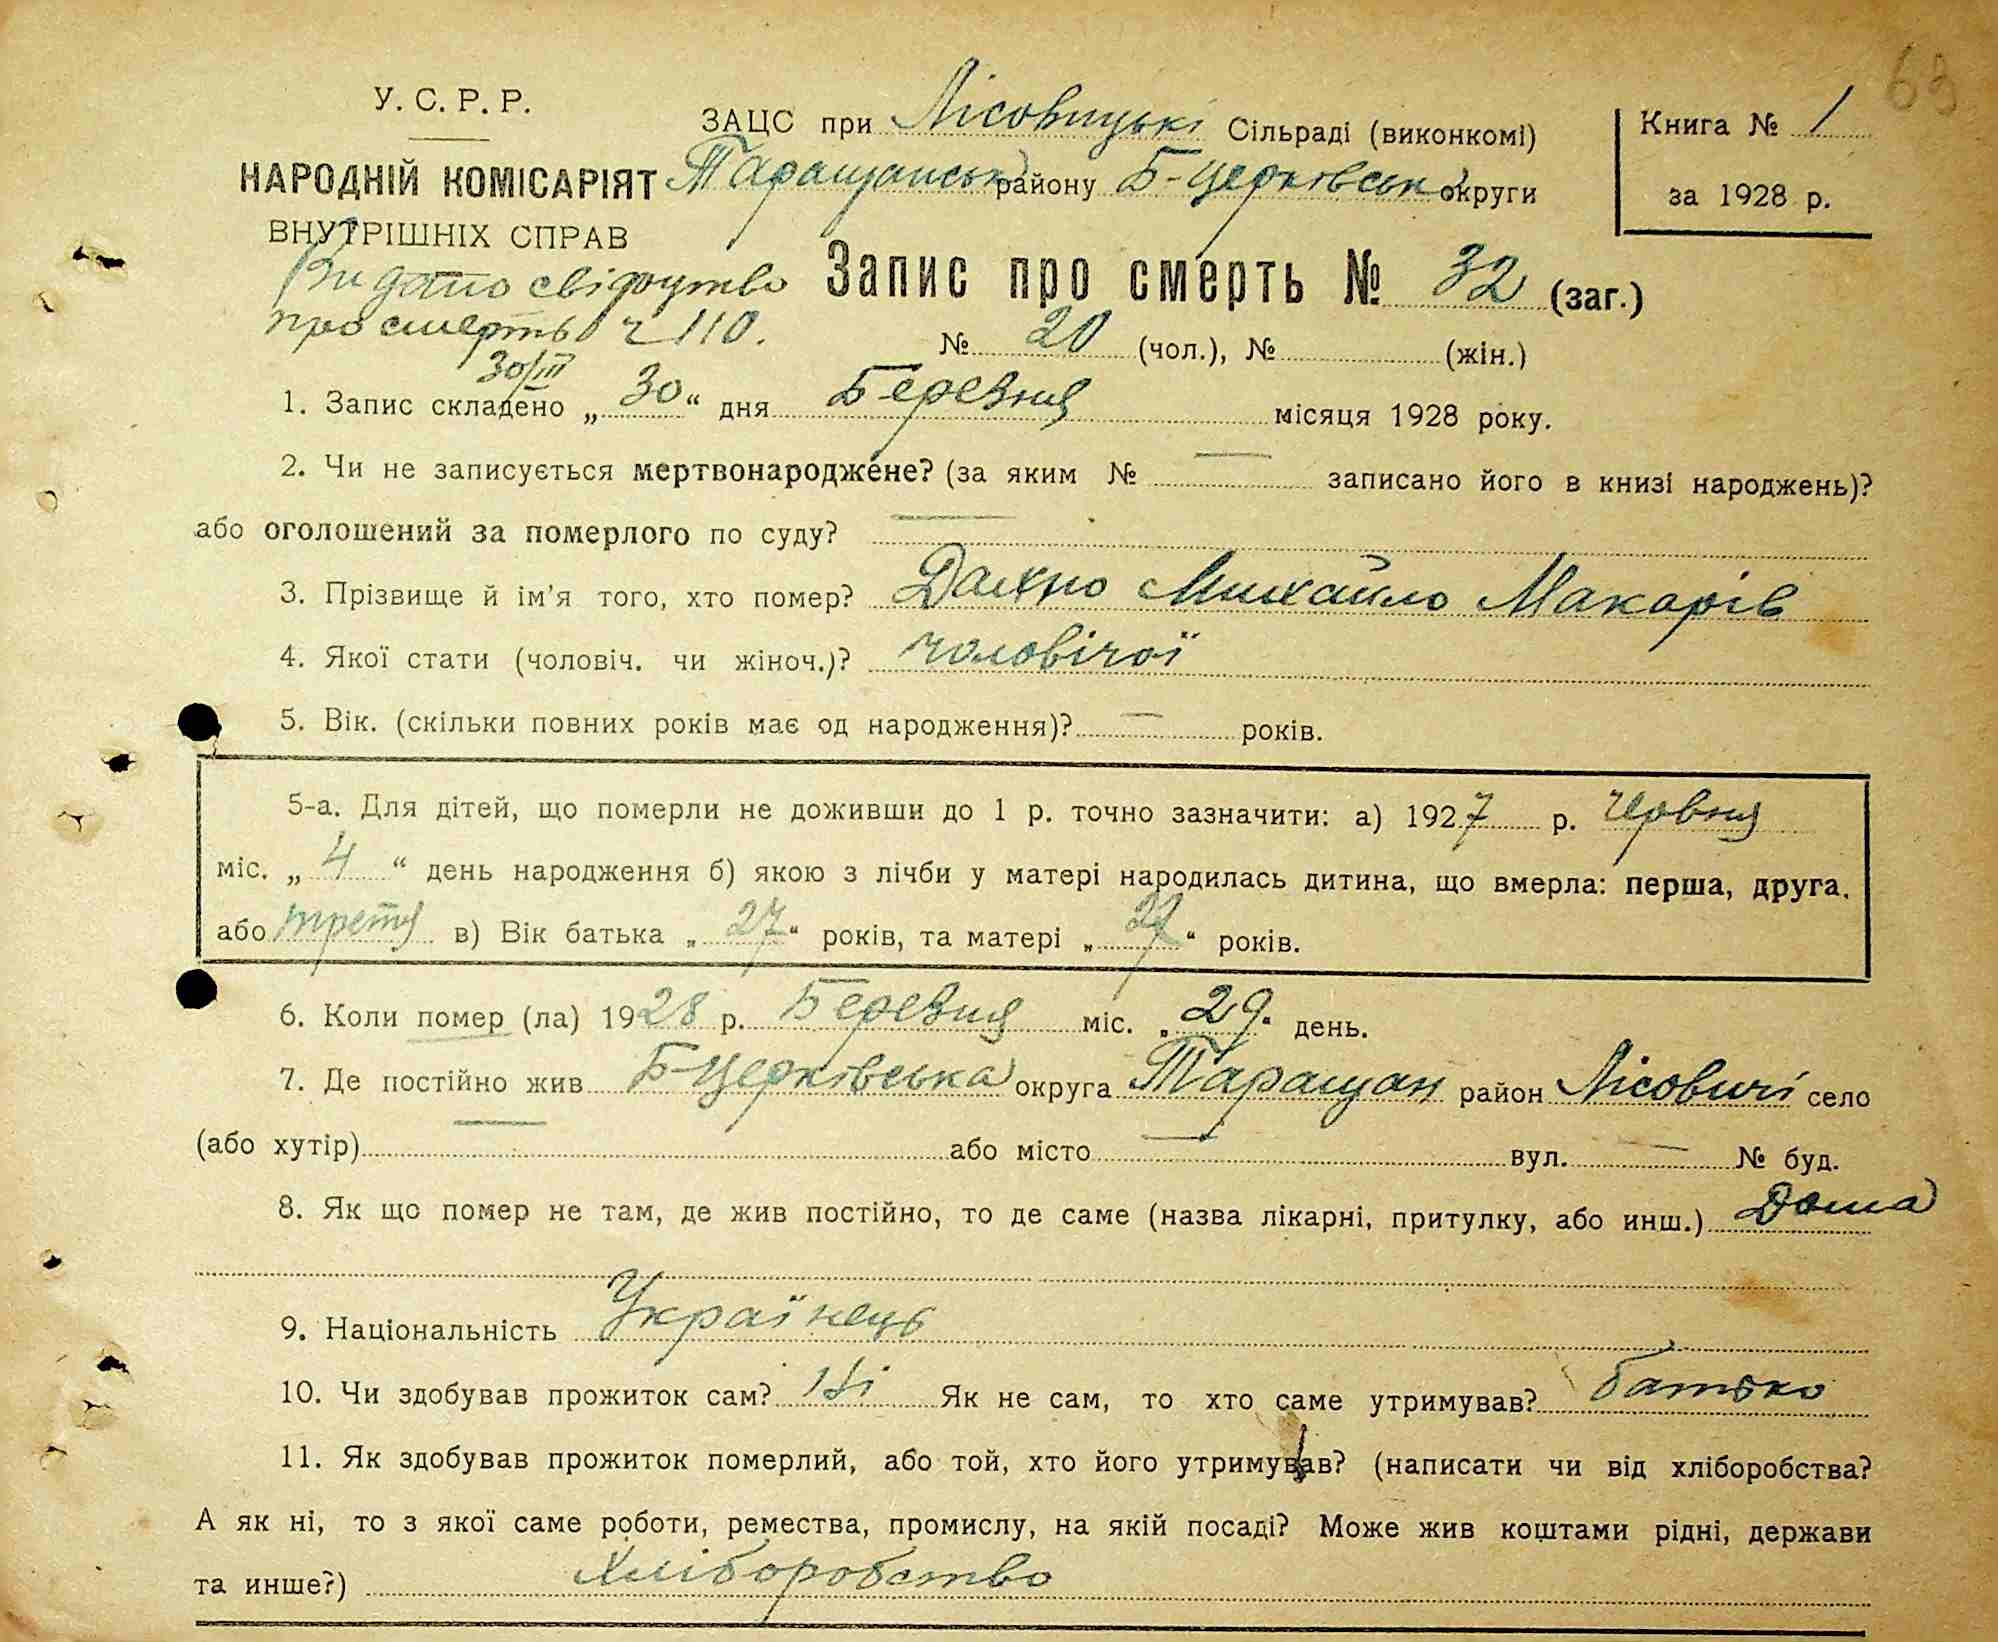 69
У. С. Р. Р.
ЗАЦС при Лісовицькі Сільраді (виконкомі)
Книга № 1
НАРОДНІЙ КОМІСАРІЯТ
Таращанськ району Б-Церківськ округи
за 1928 р.
ВНУТРІШНІХ СПРАВ
Видано свідоцтво
Запис про смерть № 32 (заг.)
про смерть ч 110.
№ 20 (чол.), № (жін.)
30/III
1. Запис складено „ 30 “ дня Березня місяця 1928 року.
2. Чи не записується мертвонароджене? (за яким № — записано його в книзі народжень)?
або оголошений за померлого по суду? —
3. Прізвище й ім'я того, хто помер? Дахно Михайло Макарів
4. Якої стати (чоловіч. чи жіноч.)? чоловічої
5. Вік. (скільки повних років має од народження)? — років.
5-а. Для дітей, що померли не доживши до 1 р. точно зазначити: а) 1927 р. Червня
міс. „ 4 “ день народження б) якою з лічби у матері народилась дитина, що вмерла: перша, друга.
або третя в) Вік батька „ 27 “ років, та матері „ 27 “ років.
6. Коли помер (ла) 1928 р. Березня міс. „ 29 “ день.
7. Де постійно жив Б-Церківська округа Таращан район Лісовичі село
(або хутір) — або місто — вул. — № буд.
8. Як що помер не там, де жив постійно, то де саме (назва лікарні, притулку, або инш.) Дома
9. Національність Українець
10. Чи здобував прожиток сам? Ні Як не сам, то хто саме утримував? батько
11. Як здобував прожиток померлий, або той, хто його утримував? (написати чи від хліборобства?
А як ні, то з якої саме роботи, ремества, промислу, на якій посаді? Може жив коштами рідні, держави
та инше?) Хліборобство